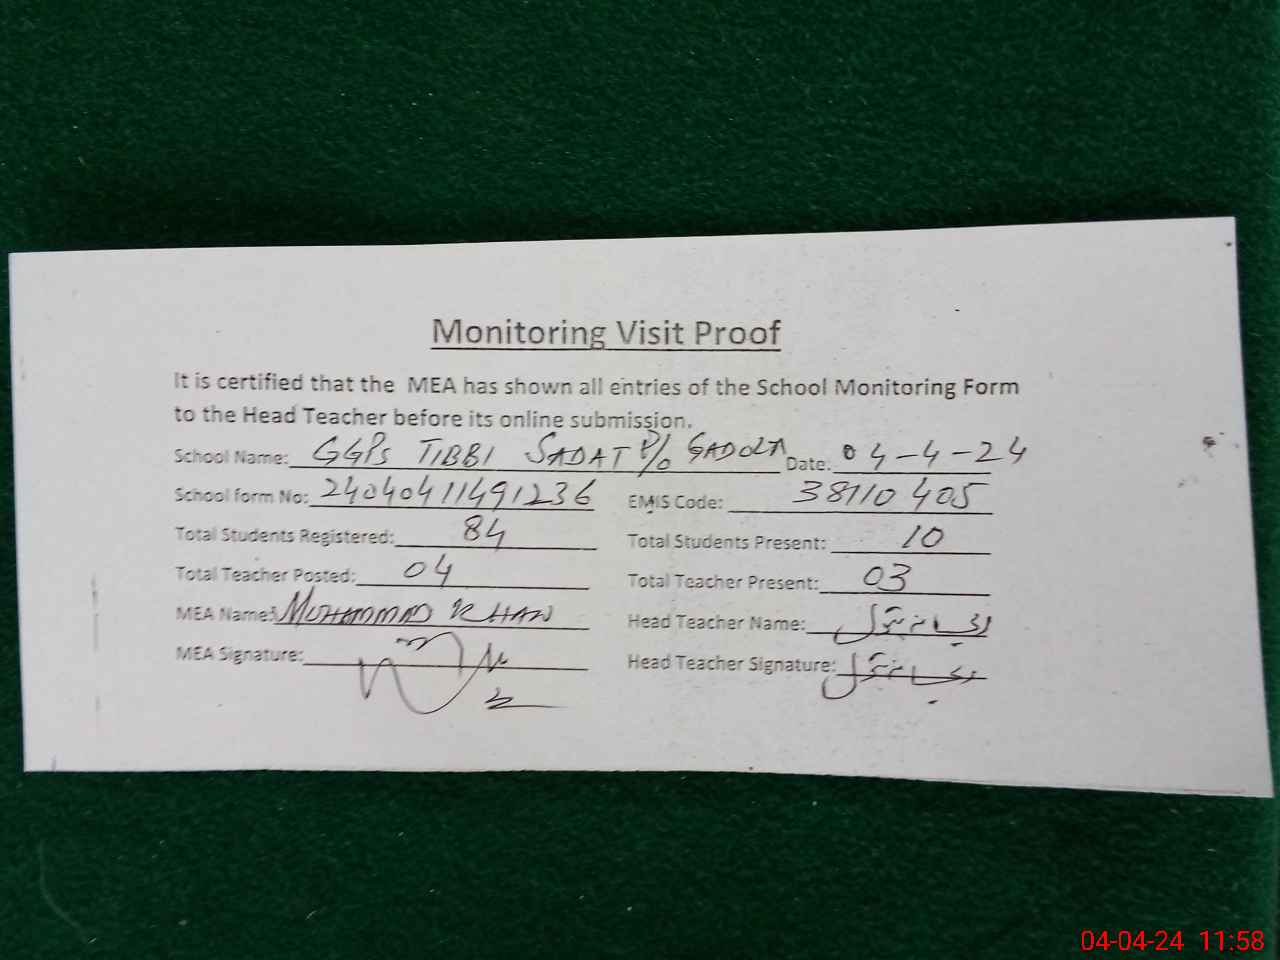 Monitoring Visit Proof
It is certified that the MEA has shown all entries of the School Monitoring Form
to the Head Teacher before its online submission.
School Name: GGPS TIBBI SADAT P/O Date: 04-4-24
School form No: 24040411491236 EMIS Code: 38110405
Total Students Registered: 84 Total Students Present: 10
Total Teacher Posted: 04 Total Teacher Present: 03
MEA Name: MUHAMMAD KHAN Head Teacher Name:
MEA Signature: Head Teacher Signature:
04-04-24 11:58